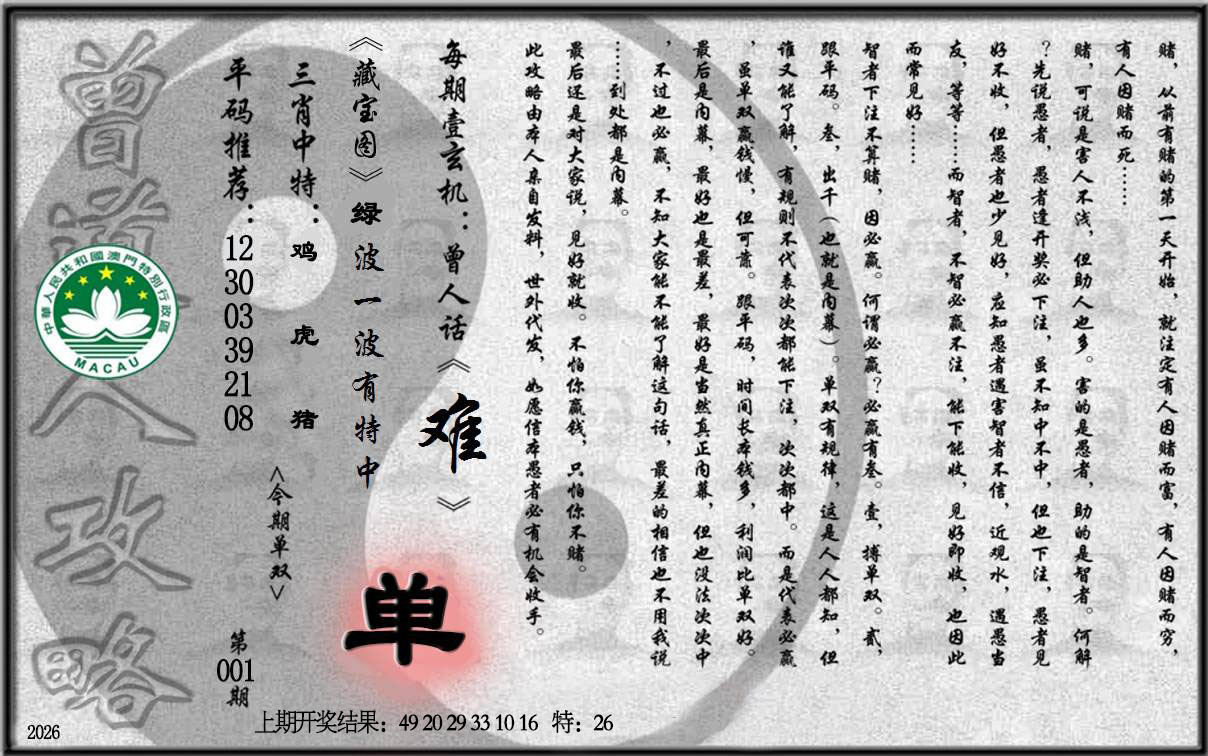 赌，从前有赌的第一天开始，就注定有人因赌而富，有人因赌而穷，
有人因赌而死……
赌，可说是害人不浅，但助人也多。害的是愚者，助的是智者。何解
？先说愚者，愚者逢开奖必下注，虽不知中不中，但也下注，愚者见
好不收，但愚者也少见好，应知愚者遇害智者不信，近观水，遇愚当
友，等等……而智者，不智必赢不注，能下能收，见好即收，也因此
而常见好……
智者下注不算赌，因必赢。何谓必赢？必赢有叁。壹，搏单双。贰，
跟平码。叁，出千（也就是内幕）。单双有规律，这是人人都知，但
谁又能了解，有规则不代表次次都能下注，次次都中。而是代表必赢
，虽单双赢钱慢，但可靠。跟平码，时间长本钱多，利润比单双好。
最后是内幕，最好也是最差，最好是当然真正内幕，但也没法次次中
，不过也必赢，不知大家能不能了解这句话，最差的相信也不用我说
……到处都是内幕。
最后还是对大家说，见好就收。不怕你赢钱，只怕你不赌。
此攻略由本人亲自发料，世外代发，如愿信本愚者必有机会收手。
每期壹玄机：曾人话《难》
《藏宝图》绿波一波有特中
三肖中特：鸡 虎 猪
平码推荐：12 30 03 39 21 08
<今期单双>
单
第001期
曾道人攻略
中華人民共和國澳門特別行政區
MACAU
上期开奖结果：49 20 29 33 10 16 特：26
2026